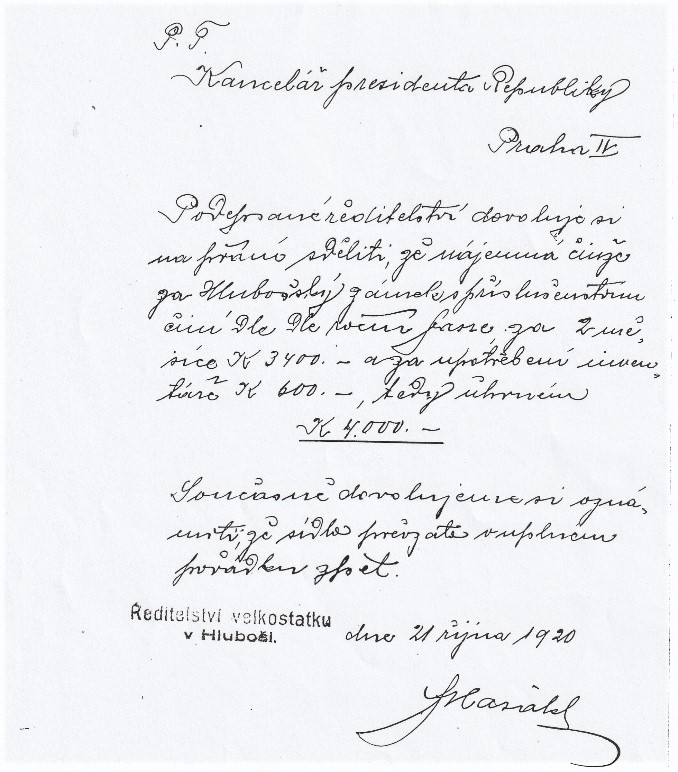 P. T.
Kancelář presidenta Republiky
Praha IV
Podepsané ředitelství dovoluje si
na přání sděliti, že nájemná činže
za Hlubošský zámek s příslušenstvím
činí dle dle roční fasse za 2 mě-
síce K 3400.- a za upotřebení inven-
táře K 600.-, tedy úhrnem
K 4.000.-
Současně dovolujeme si ozná-
miti, že sídlo převzato v úplném
pořádku zpět.
Ředitelství velkostatku
v Hluboši.
dne 21 října 1920